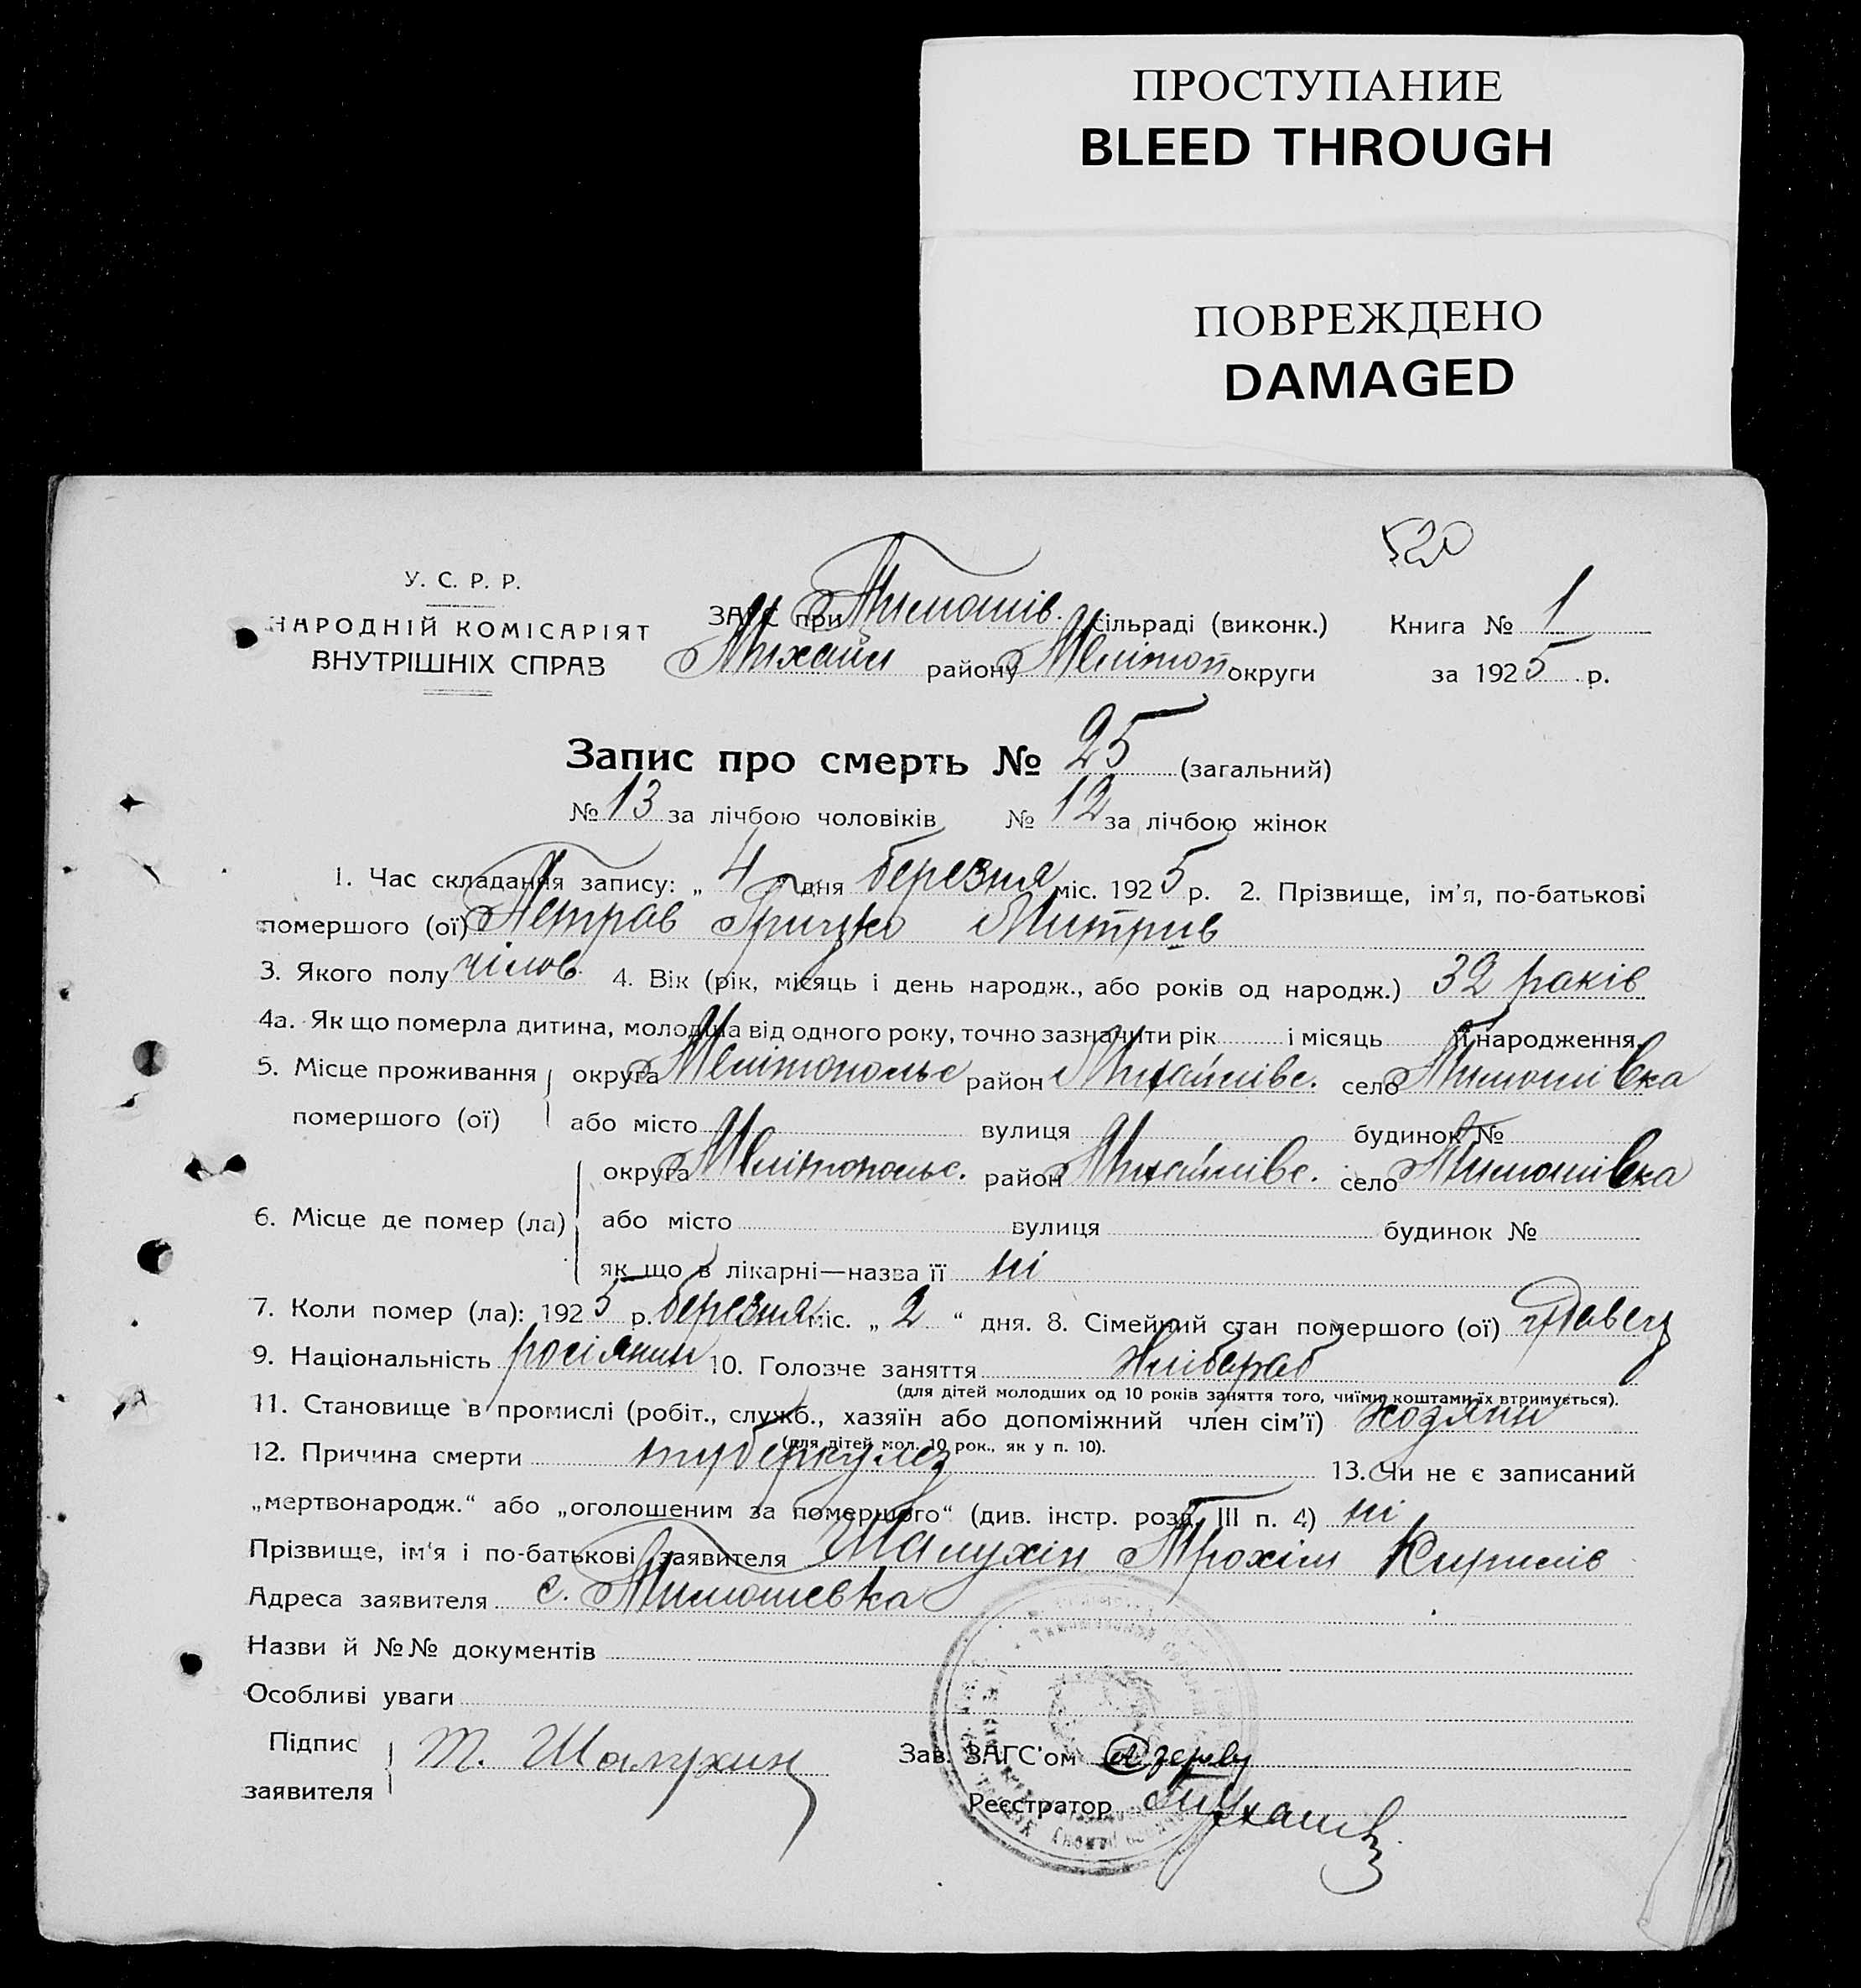 ПРОСТУПАНИЕ
BLEED THROUGH
ПОВРЕЖДЕНО
DAMAGED
520
У. С. Р. Р.
НАРОДНІЙ КОМІСАРІЯТ
ВНУТРІШНІХ СПРАВ
ЗАГС при Тимошів. сільраді (виконк.) Книга № 1
Михайл району Мелітоп округи за 1925 р.
Запис про смерть № 25 (загальний)
№ 13 за лічбою чоловіків № 12 за лічбою жінок
1. Час складання запису: „ 4 " дня березня міс. 1925 р. 2. Прізвище, ім'я, по-батькові
помершого (ої) Петрав Грицко Митрив
3. Якого полу чілов. 4. Вік (рік, місяць і день народж., або років од народж.) 32 раків
4а. Як що померла дитина, молодша від одного року, точно зазначити рік і місяць її народження
5. Місце проживання округа Мелітопольс район Михайлівс. село Тимошівка
помершого (ої) або місто вулиця будинок №
округа Мелітопольс. район Михайлівс. село Тимошівка
6. Місце де помер (ла) або місто вулиця будинок №
як що в лікарні—назва її ні
7. Коли помер (ла): 1925 р. березня міс. „ 2 “ дня. 8. Сімейний стан помершого (ої) вдавец
9. Національність росіянин 10. Головне заняття хлібараб
(для дітей молодших од 10 років заняття того, чиїми коштами їх втримується).
11. Становище в промислі (робіт., служб., хазяїн або допоміжний член сім'ї) хозяин
(для дітей мол. 10 рок., як у п. 10).
12. Причина смерти туберкулез 13. Чи не є записаний
„мертвонародж.“ або „оголошеним за помершого“ (див. інстр. розд. III п. 4) ні
Прізвище, ім'я і по-батькові заявителя Шалухін Трохім Кирилів
Адреса заявителя с. Тимошевка
Назви й №№ документів
Особливі уваги
Підпис заявителя Т. Шалухин
Зав. ЗАГС'ом
Реєстратор